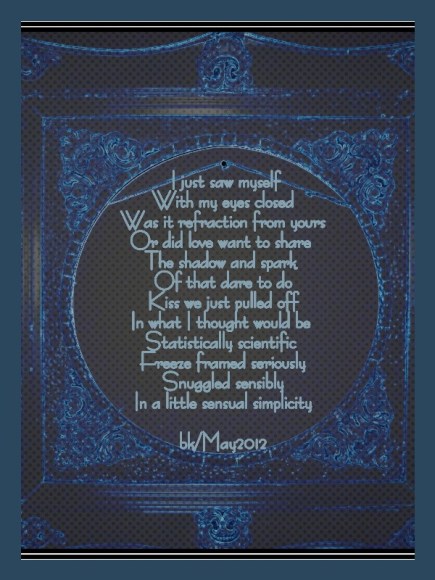 I just saw myself
With my eyes closed
Was it refraction from yours
Or did love want to share
The shadow and spark
Of that dare to do
Kiss we just pulled off
In what I thought would be
Statistically scientific
Freeze framed seriously
Snuggled sensibly
In a little sensual simplicity
bk/May2012